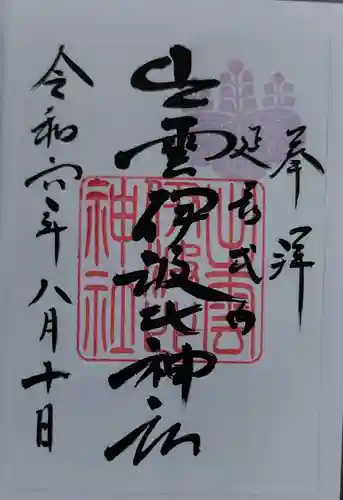 奉拝
延喜式内
出雲伊波比神社
出雲
伊波比
神社
令和六年八月十日